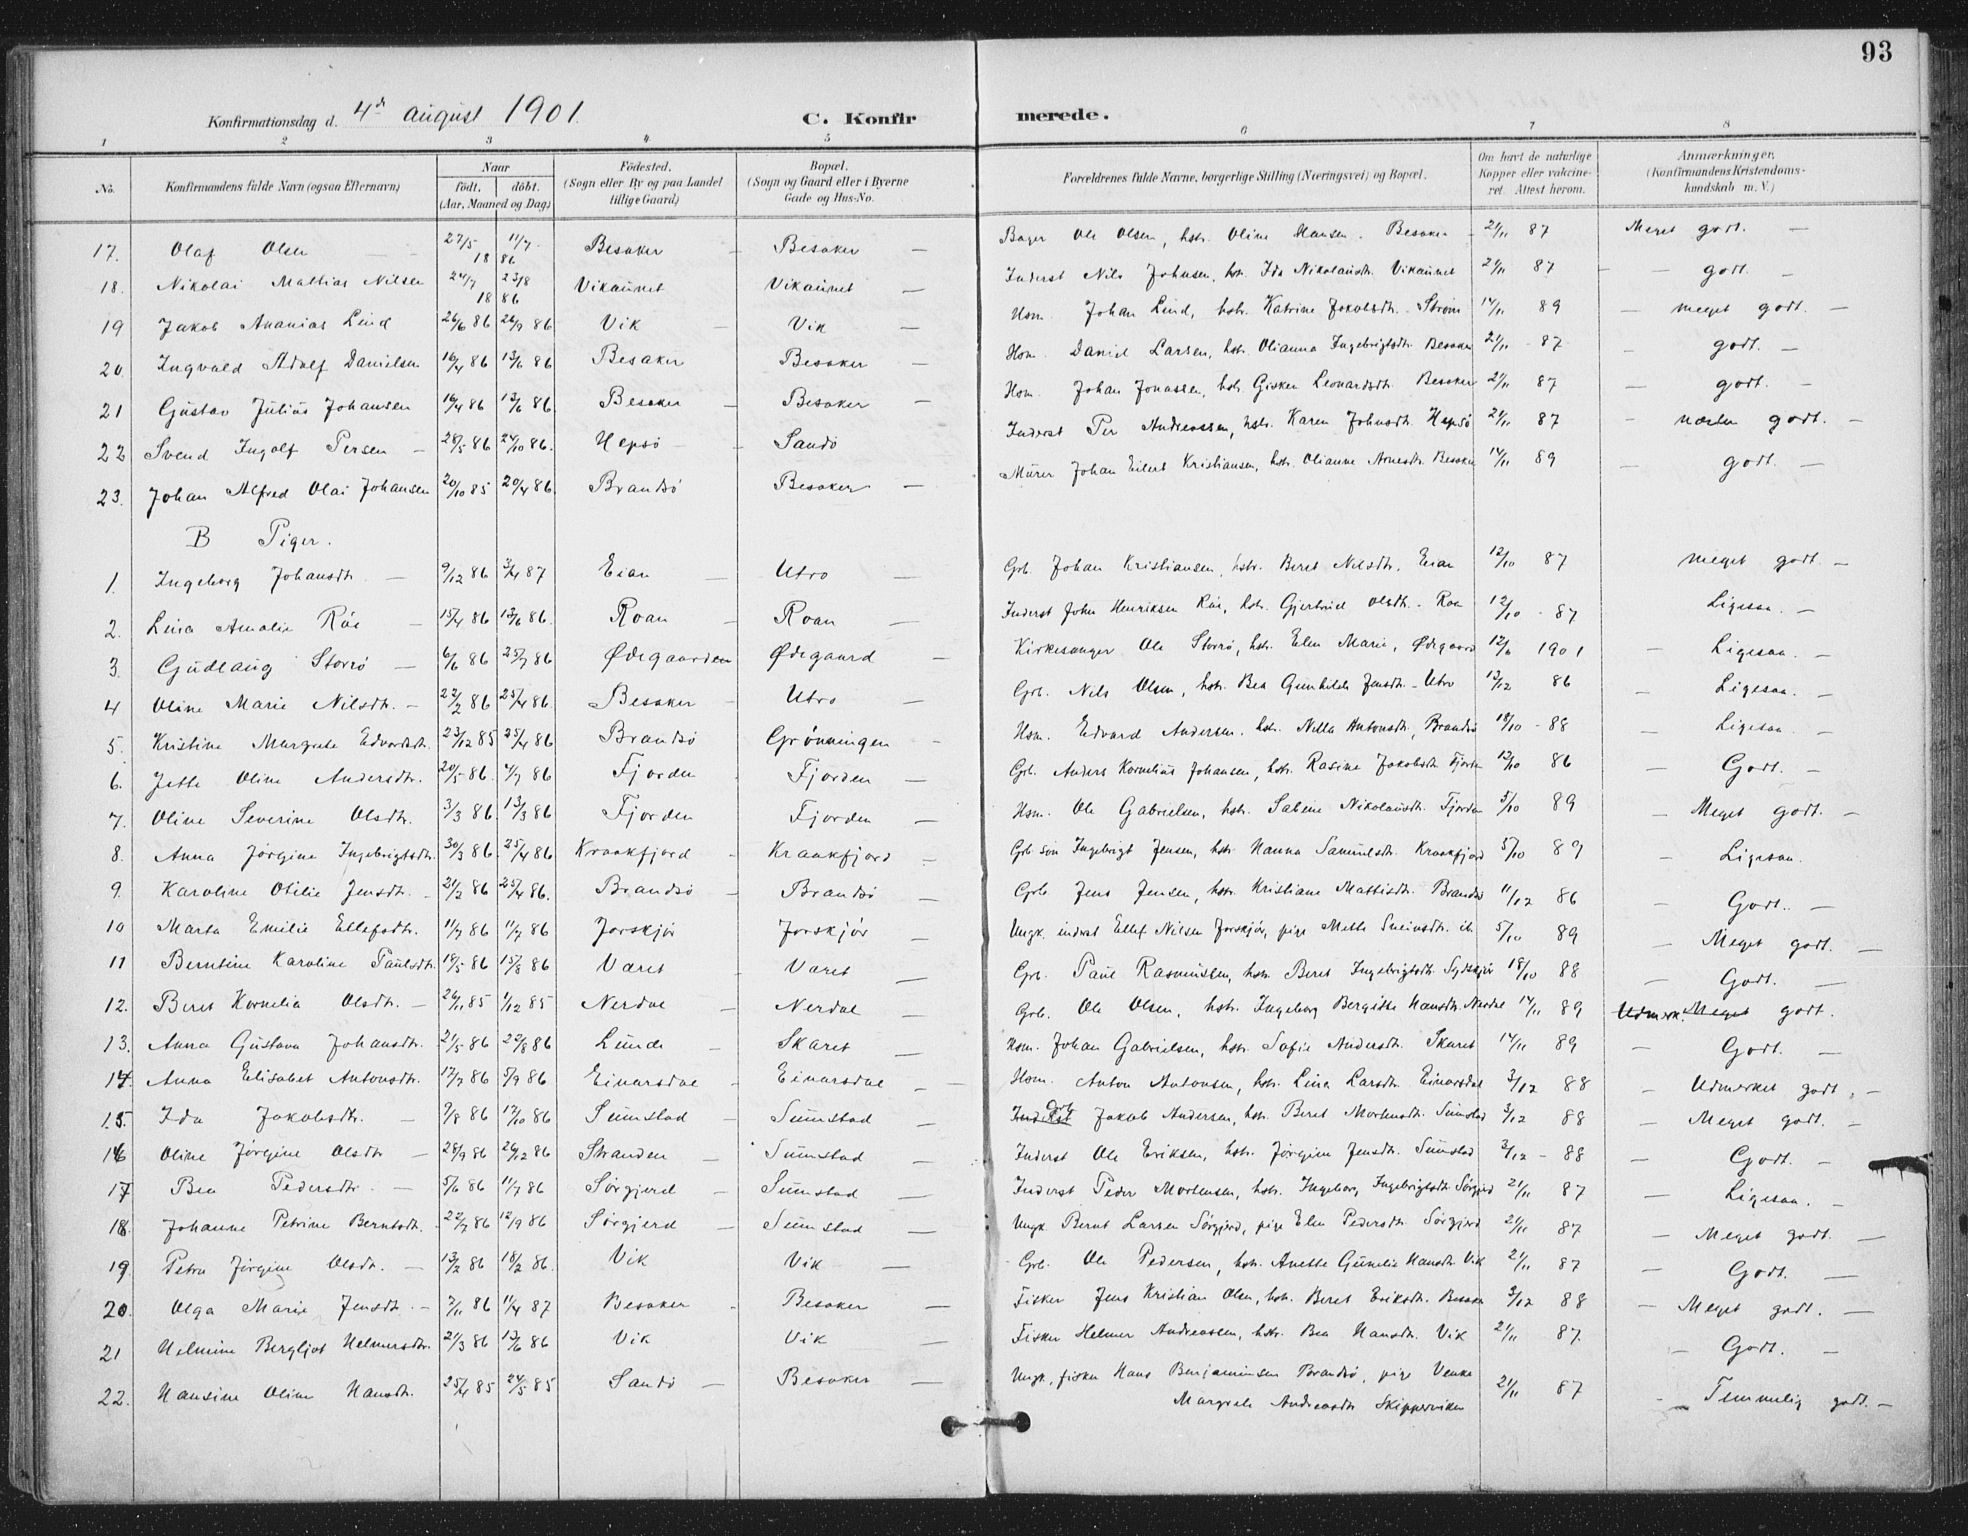 93
Konfirmationsdag d. 4de august 1901. C. Konfirmerede.
1 2 3 4 5 6 7 8
No. Konfirmandens fulde Navn (ogsaa Efternavn) Naar født. døbt. (Aar, Maaned og Dag) Fødested. (Sogn eller By og paa Landet tillige Gaard) Bopæl. (Sogn og Gaard eller i Byerne Gade og Hus-No. Forældrenes fulde Navne, borgerlige Stilling (Næringsvei) og Bopæl. Om havt de naturlige Kopper eller vakcineret. Attest herom. Anmærkninger. (Konfirmandens Kristendomskundskab m. V.)
17. Olaf Olsen 27/5 11/7 18 86 Besaker Besaker Bager Ole Olsen, hstr. Oline Hansen. Besaker 21/11 87 Meget godt.
18. Nikolai Mathias Nilsen 24/7 23/8 18 86 Vikaunet Vikaunet Inderst Nils Johnsen, hstr. Ida Nikolausdtr. Vikaunet 21/11 87 godt.
19 Jakob Ananias Lind 26/6 86 26/9 86 Vik Vik Hsm. Johan Lind, hstr. Katrine Jakobsdtr. Strøm 14/11 89 meget godt.
20. Ingvald Adolf Danielsen 16/4 86 13/6 86 Besaker Besaker Hsm. Daniel Larsen, hstr. Olianna Ingebrigtsdtr. Besaker 21/11 87 godt.
21 Gustav Julius Johansen 16/4 86 13/6 86. Besaker Besaker Hsm. Johan Jonassen, hstr. Gisken Leonardsdtr. Besaker 21/11 87 godt.
22 Svend Ingolf Persen 28/5 86 24/10 86. Hepsø Sandø Inderst Per Andreassen, hstr. Karen Johnsdtr. Hepsø 21/11 87 næsten godt.
23. Johan Alfred Olai Johansen 20/10 85 20/4 86. Brandsø Besaker Murer Johan Eilert Kristiansen, hstr. Olianne Arnesdtr. Besaker 14/11 89 godt.
B Piger.
1. Ingeborg Johansdtr. 9/12 86 3/4 87 Eian Utro Grb. Johan Kristiansen, hstr. Beret Nilsdtr. Eian 12/10 87 meget godt.
2. Lina Amalie Råe 15/4 86 13/6 86. Roan Roan Inderst John Henriksen Råe, hstr. Gjertrud Olsdtr. Roan 12/10 87 Ligesaa.
3 Gudlaug Storrø 6/6 86 25/7 86 Ødegaarden Ødegaard Kirkesanger Ole Storrø, hstr. Elen Marie, Ødegaard 12/6 1901 Ligesaa.
4 Oline Marie Nilsdtr. 22/2 86 25/4 86. Besaker Utro Grb. Nils Olsen, hstr. Bea Gunhilde Jensdtr. Utro 13/12 86 Ligesaa.
5. Kristine Margrete Edvardsdtr. 23/12 85 25/4 86 Brandsø Grønningen Hsm. Edvard Andersen. hstr. Nilla Antonsdtr. Brandsø 18/10 88 Ligesaa.
6. Jette Oline Andersdtr. 20/5 86. 4/7 86 Fjorden Fjorden Grb. Anders Kornelius Johansen, hstr. Rasine Jakobsdtr. Fjorden 12/10 86 Godt.
7. Oline Severine Olsdtr. 3/3 86. 13/3 86 Fjorden Fjorden Hsm. Ole Gabrielsen, hstr. Sabine Nikolausdtr. Fjorden 5/10 89 Meget godt.
8. Anna Jørgine Ingebrigtsdtr. 30/3 86. 25/4 86 Kraakfjord Kraakfjord Grb. søn Ingebrigt Jensen, hstr. Hanna Samuelsdtr. Kraakfjord 5/10 89 Ligesaa.
9. Karoline Otilie Jensdtr. 21/2 86 25/4 86. Brandsø Brandsø Grb Jens Jensen, hstr. Kristiane Mattisdtr. Brandsø 11/12 86 Godt.
10 Marta Emilie Ellefsdtr. 11/7 86 11/7 86 Jørskjør Jørskjør Ungk. inderst Ellef Nilsen Jørskjør, pige Mette Sveinsdtr. ib. 5/10 89 Meget godt.
11 Berntine Karoline Paulsdtr. 18/5 86 15/8 86 Været Været Grb. Paul Rasmussen, hstr. Beret Ingebrigtsdtr. Sydskjør 18/10 88 Godt.
12. Beret Kornelia Olsdtr. 26/11 85 1/12 85 Nerdal Nerdal Grb. Ole Olsen, hstr. Ingeborg Bergitte Hansdtr. Nerdal 14/11 89 Udmerk. Meget godt.
13. Anna Gustava Johansdtr. 21/5 86 22/8 86 Lunde Skaret Hsm. Johan Gabrielsen, hstr. Sofie Andersdtr. Skaret 14/11 89 Godt.
14. Anna Elisabet Antonsdtr. 17/7 86 5/9 86 Einarsdal Einarsdal Hsm. Anton Antonsen, hstr. Lina Larsdtr. Einarsdal 3/12 88 Udmerket godt.
15. Ida Jakobsdtr. 9/8 86 17/10 86 Sumstad Sumstad Inderst Grb. Jakob Andersen, hstr. Beret Mortensdtr. Sumstad 3/12 88 Meget godt.
16 Oline Jørgine Olsdtr. 28/9 86 26/12 86 Stranden Sumstad Inderst Ole Eriksen, hstr. Jørgine Jensdtr. Sumstad 3/12 88 Godt.
17 Bea Pedersdtr. 5/6 86 11/7 86 Sørgjerd Sumstad Inderst Peder Mortensen, hstr. Ingeborg Ingebrigtsdtr. Sørgjerd 21/11 87 Ligesaa.
18. Johanne Petrine Berntsdtr. 22/7 86 12/9 86 Sørgjerd Sumstad Ungk. Bernt Larsen Sørgjerd, pige Elen Pedersdtr Sørgjerd 21/11 87 Meget godt.
19. Petra Jørgine Olsdtr. 13/2 86 18/2 86. Vik Vik Grb. Ole Pedersen, hstr. Anette Gunelie Hansdtr. Vik 21/11 87 Godt.
20. Olga Marie Jensdtr. 7/11 86 11/4 87 Besaker Besaker Fisker Jens Kristian Olsen, hstr. Beret Eriksdtr. Besaker 3/12 88 Meget godt.
21 Helmine Bergljot Helmersdtr. 21/3 86 13/6 86 Vik Vik Fisker Helmer Andreassen, hstr. Bea Hansdtr. Vik 21/11 87. Godt.
22. Hansine Oline Hansdtr. 25/4 85 24/5 85 Sandø Besaker Ungk. fisker Hans Benjaminsen Brandsø, pige Venke Margrete Andreasdtr Skipperviken 21/11 87 Temmelig godt.